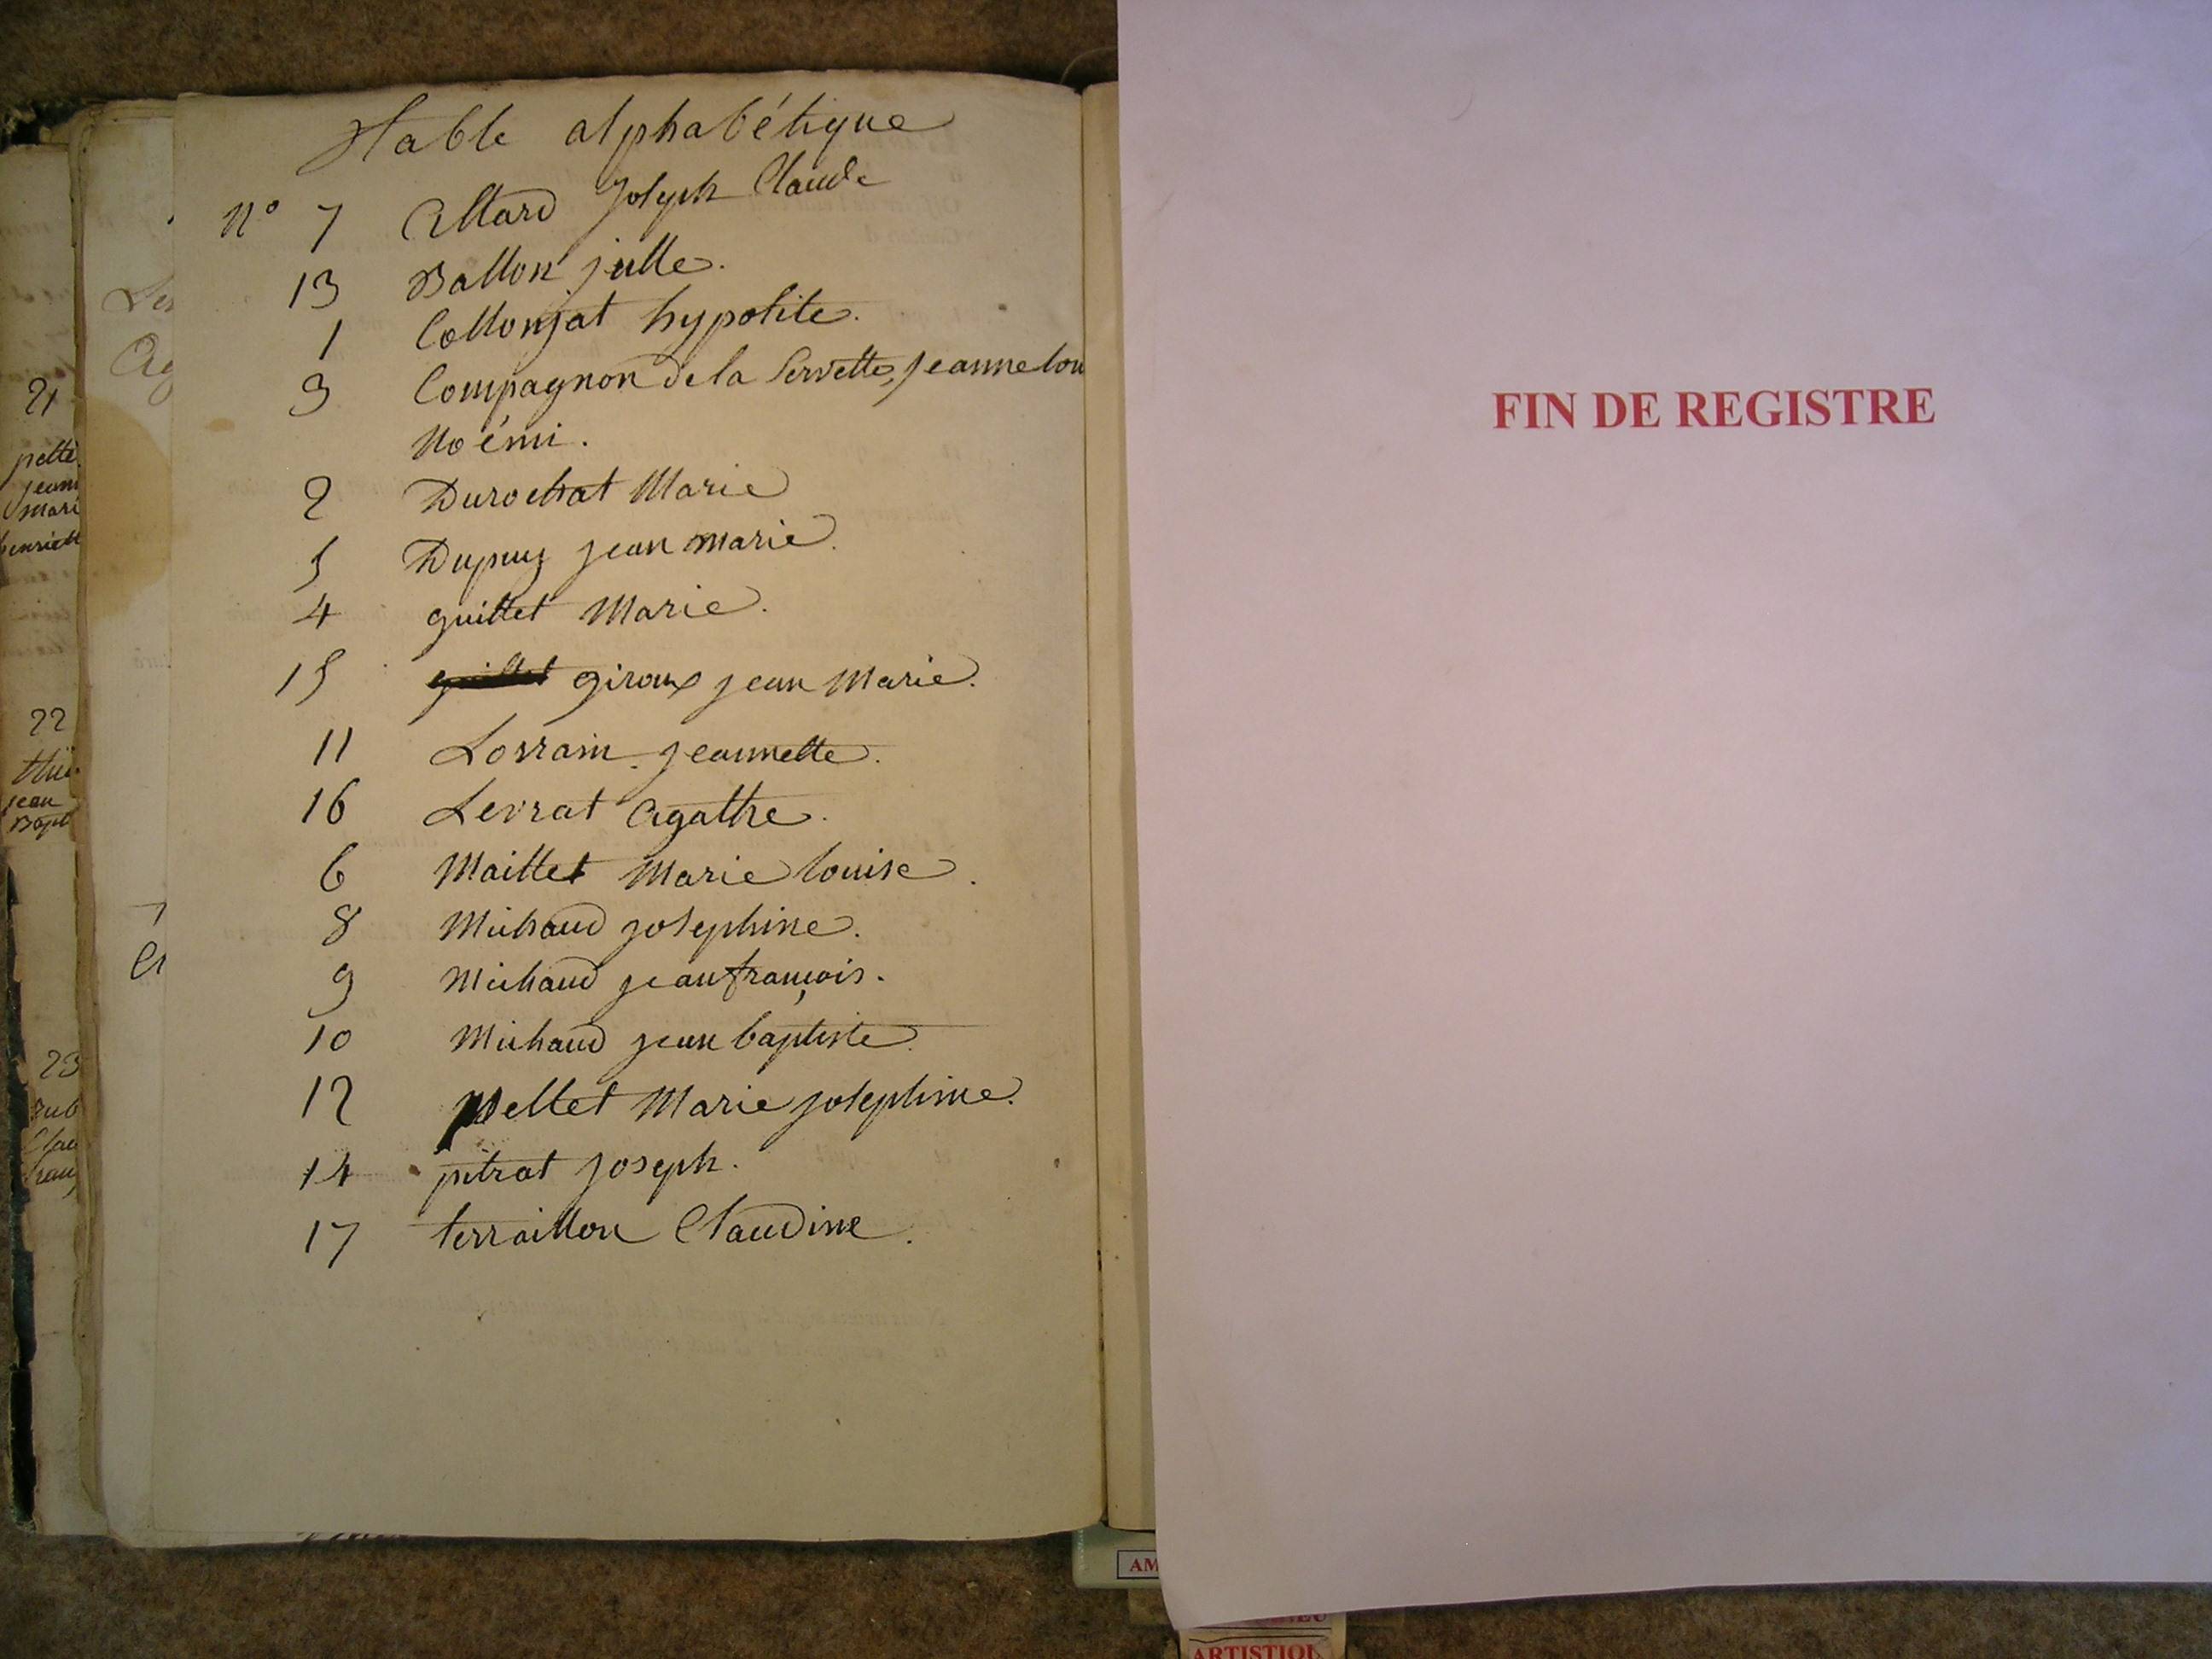 Table alphabétique
N° 7 Allard Joseph Claude
13 Ballon julle.
1 Collonjat hypolite.
3 Compagnon de la Servette, jeanne lou
Noémi.
2 Durochat Marie
5 Dupuy jean marie.
4 guillet Marie.
15 guillet giroux jean Marie.
11 Lorrain jeannette.
16 Levrat Agathe.
6 Maillet Marie louise.
8 Michaud josephine.
9 Michaud jean françois.
10 Michaud jean baptiste.
12 pellet Marie josephine.
14 pitrat joseph.
17 terraillon Claudine.
21
pelte
jeann
Mari
henriett
22
jean
Bapt
23
FIN DE REGISTRE
AM
ARTISTIQU